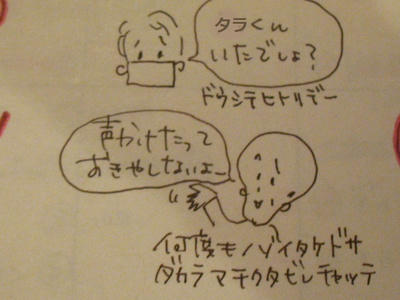 タラくん
いたでしょ?
ドウシテヒトリデー
声かけたって
おきやしないよー
何度もノゾイタケドサ
ダカラマチクタビレチャッテ